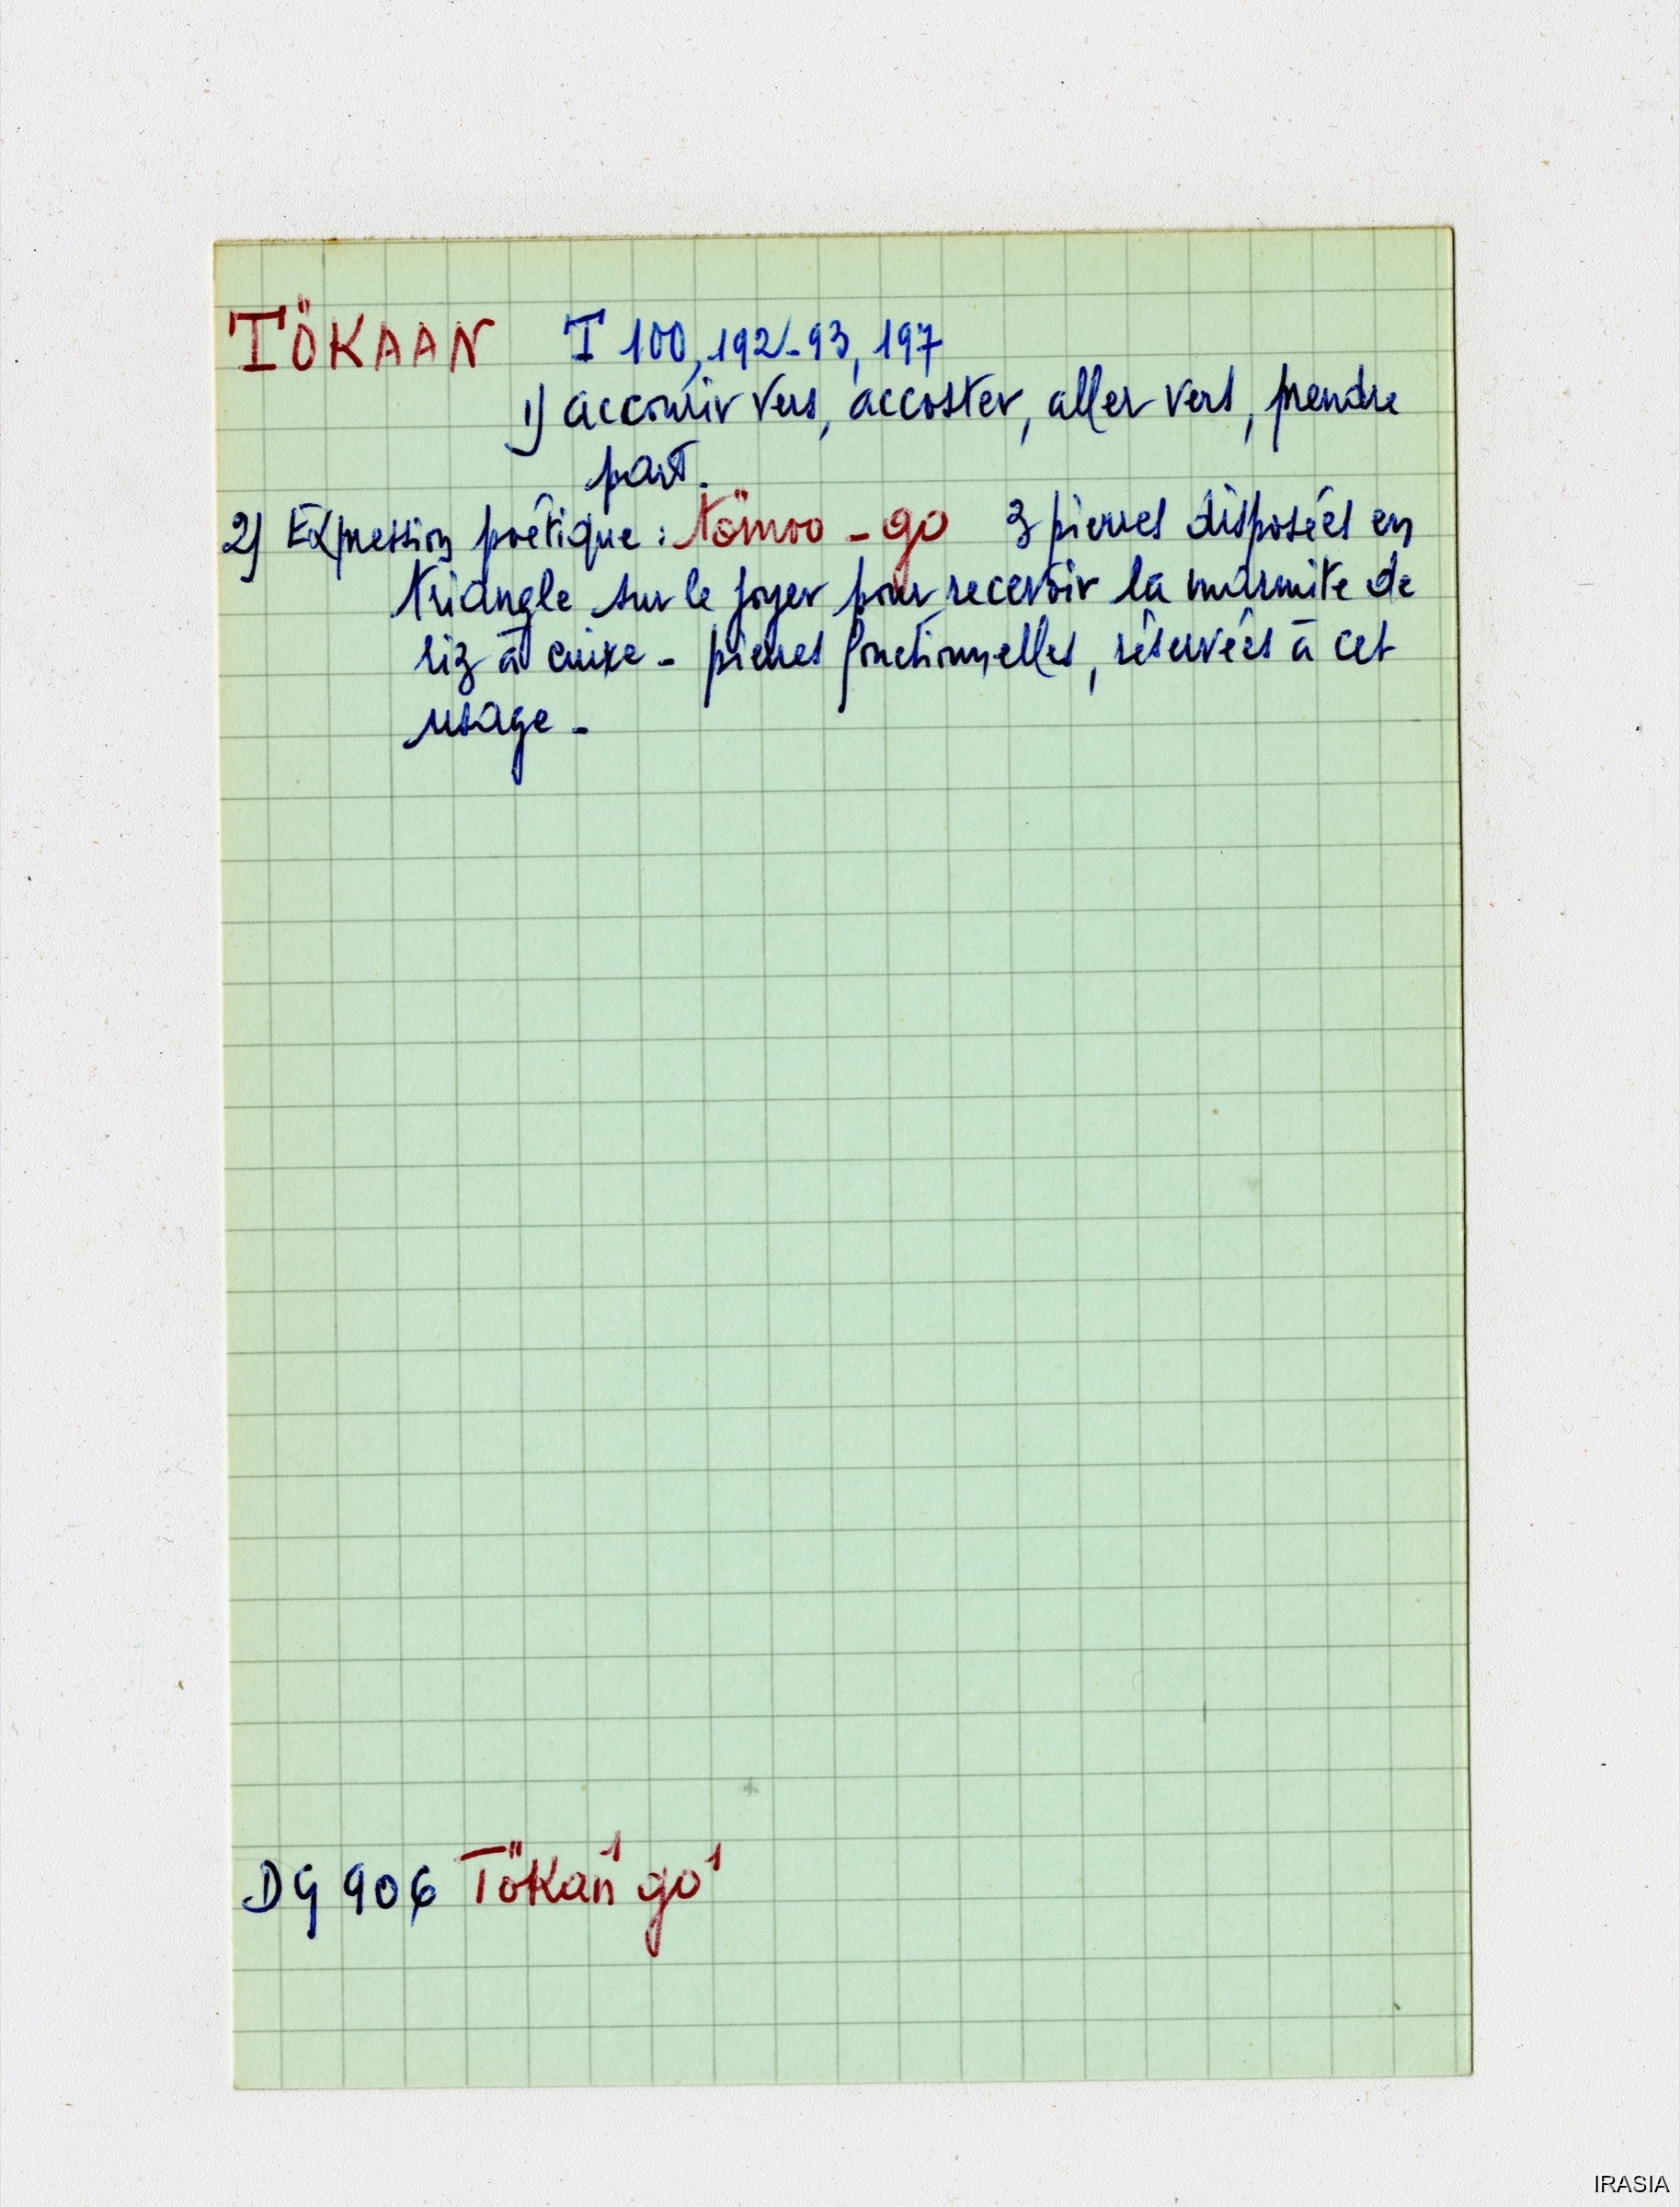 TÖKAAN T 100, 192-93, 197
1) accourir vers, accoster, aller vers, prendre
part.
2) Expression poétique : tömoo - go 3 pierres disposées en
triangle sur le foyer pour recevoir la marmite de
riz à cuire - pierres fonctionnelles, réservées à cet
usage -
DG 906 Tökan¹ go¹
IRASIA